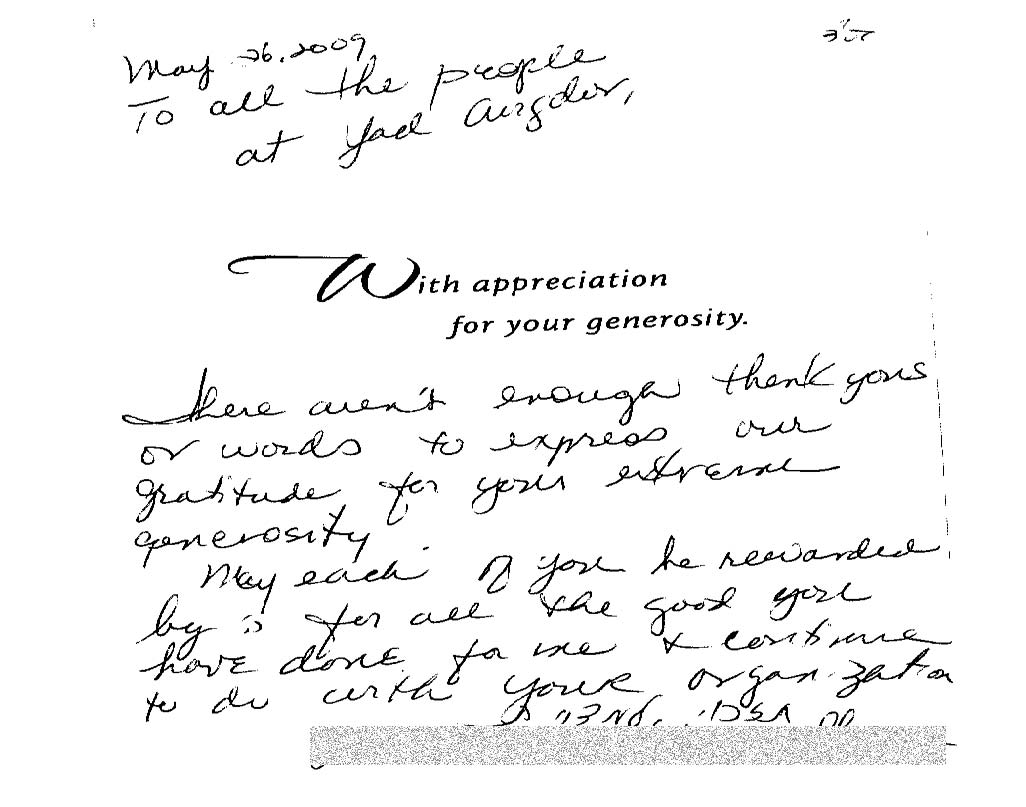 בס"ד
May 26, 2009
To all the people
at Yad Avigdor,
With appreciation
for your generosity.
There aren't enough thank yous
or words to express our
gratitude for your extreme
generosity
May each of you be rewarded
by ה' for all the good you
have done for me & continue
to do with your organization